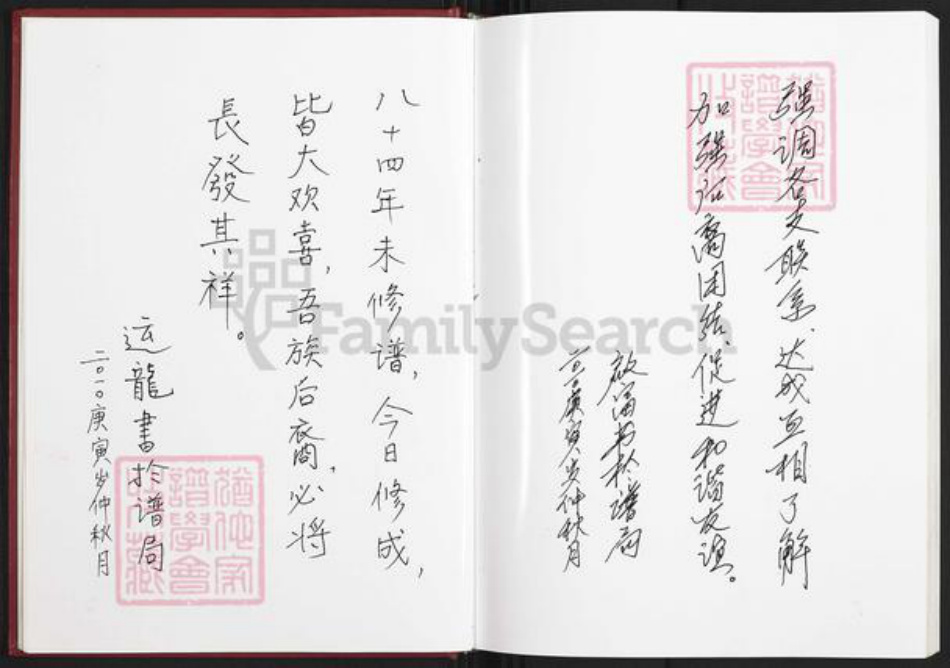 强调各支联系、达成互相了解
加强
团结、促进和谐友谊。
启富书於谱局
二〇一〇庚寅岁仲秋月
八十四年未修谱，今日修成，
皆大欢喜，吾族后裔，必将
長發其祥。
运龍書於谱局
二〇一〇庚寅岁仲秋月
譜學會
譜學會
FamilySearch